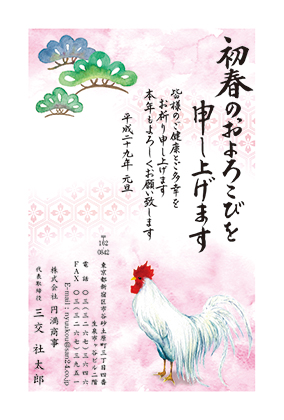 初春のおよろこびを
申し上げます
皆様のご健康とご多幸を
お祈り申し上げます
本年もよろしくお願い致します
平成二十九年 元旦
〒
162
0842
東京都新宿区市谷砂土原町三丁目四番
生泉市ヶ谷ビル二階
電話 〇三（三二六七）三九五一
FAX 〇三（三二六七）三九五一
株式会社 円満商事
代表取締役 三交 社太郎